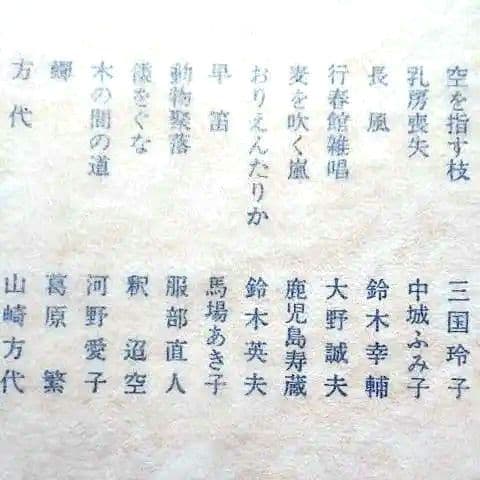 空を指す枝 三国玲子
乳房喪失 中城ふみ子
長風 鈴木幸輔
行春館雑唱 大野誠夫
麦を吹く嵐 鹿児島寿蔵
おりえんたりか 鈴木英夫
早笛 馬場あき子
動物聚落 服部直人
倭をぐな 釈迢空
木の間の道 河野愛子
蟬 葛原繁
方代 山崎方代